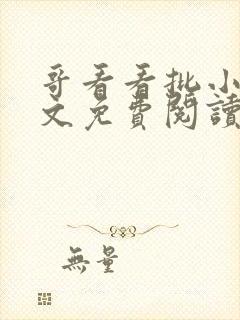 哥看看批小
文免費閱讀
無量